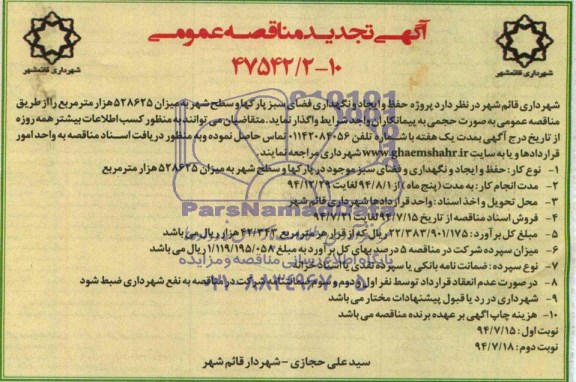 آگهی تجدید مناقصه عمومی
۱۰-۴۷۵۴۲/۲
شهرداری قائم‌شهر
شهرداری قائم‌شهر
شهرداری قائم شهر در نظر دارد پروژه حفظ و ایجاد و نگهداری فضای سبز پارکها و سطح شهر به میزان ۵۲۸۶۲۵ هزار متر مربع را از طریق
مناقصه عمومی به صورت حجمی به پیمانکاران واجد شرایط واگذار نماید. متقاضیان می توانند به منظور کسب اطلاعات بیشتر همه روزه
از تاریخ درج آگهی بمدت یک هفته با شماره تلفن ۰۱۱۴۲۰۸۴۰۵۶ تماس حاصل نموده و به منظور دریافت اسناد مناقصه به واحد امور
قراردادها و یا به سایت www.ghaemshahr.ir شهرداری مراجعه نمایند
۱- نوع کار: حفظ و ایجاد و نگهداری و فضای سبز موجود در پارکها و سطح شهر به میزان ۵۲۸۶۲۵ هزار متر مربع
۲- مدت انجام کار: به مدت (پنج ماه) از ۹۴/۸/۱ لغایت ۹۴/۱۲/۲۹
۳- محل تحویل و اخذ اسناد: واحد قراردادها شهرداری قائم شهر
۴- فروش اسناد مناقصه از تاریخ ۹۴/۷/۱۵ لغایت ۹۴/۷/۲۱
۵- مبلغ کل برآورد: ۲۲/۳۸۳/۹۰۱/۱۷۵ ریال که از قرار هر متر مربع ۴۲/۳۴۳ ریال می باشد
۶- میزان سپرده شرکت در مناقصه ۵ درصد بهای کل برآورد به مبلغ ۱/۱۱۹/۱۹۵/۰۵۸ ریال می باشد
۷- نوع سپرده: ضمانت نامه بانکی یا سپرده نقدی یا اسناد خزانه
۸- در صورت عدم انعقاد قرارداد توسط نفر اول و دوم و سوم ضمانتنامه شرکت در مناقصه به نفع شهرداری ضبط شود
۹- شهرداری در رد یا قبول پیشنهادات مختار می باشد
۱۰- هزینه چاپ آگهی بر عهده برنده مناقصه می باشد
نوبت اول: ۹۴/۷/۱۵
نوبت دوم: ۹۴/۷/۱۸
سید علی حجازی - شهردار قائم شهر
ParsNamadData
پایگاه اطلاع رسانی مناقصه و مزایده